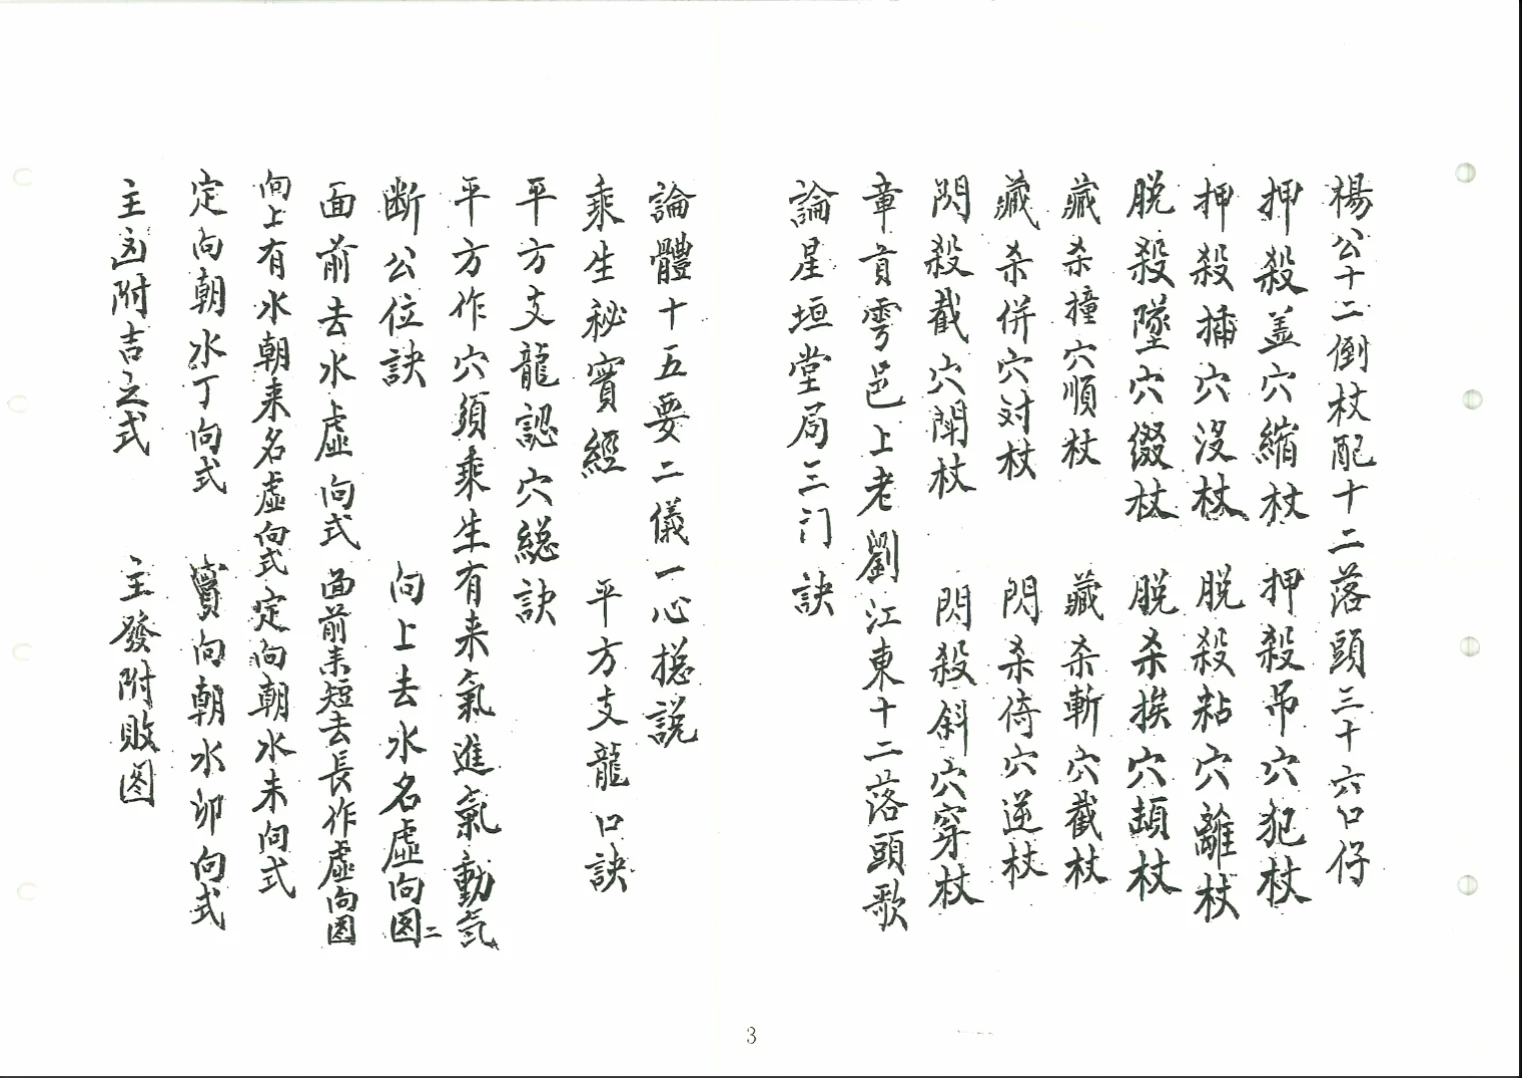 楊公十二倒杖配十二落頭三十六口仔
押殺蓋穴縮杖　押殺吊穴犯杖
押殺插穴没杖　脱殺粘穴離杖
脱殺墜穴綴杖　脱杀挨穴頓杖
藏杀撞穴順杖　藏杀斬穴截杖
藏杀併穴对杖　閃杀倚穴逆杖
閃殺截穴開杖　閃殺斜穴穿杖
章貢雩邑上老劉江東十二落頭歌
論星垣堂局三门訣
論體十五要二儀一心揔説
乘生秘寳經　平方支龍口訣
平方支龍認穴総訣
平方作穴須乘生有来氣進氣動氣
断公位訣　向上去水名虛向图二
面前去水虛向式　面前来短去長作虛向图
向上有水朝来名虛向式　定向朝水未向式
定向朝水丁向式　寳向朝水卯向式
主凶附吉之式　主發附敗图
3